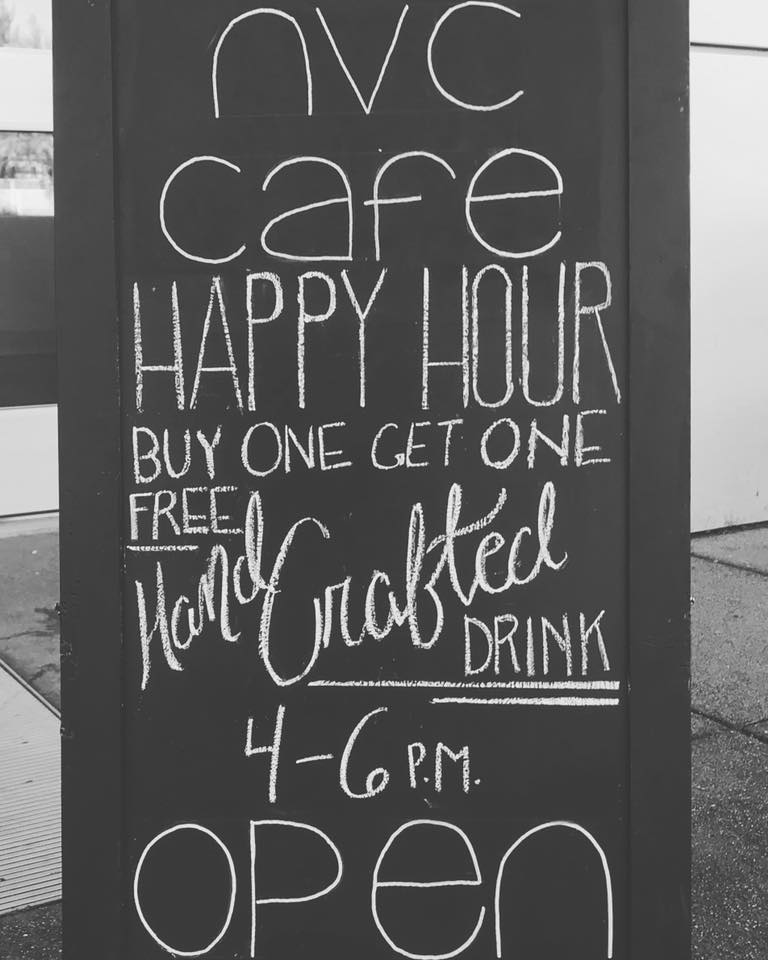 nvc
cafe
HAPPY HOUR
BUY ONE GET ONE
FREE
Hand Crafted
DRINK
4-6 P.M.
open